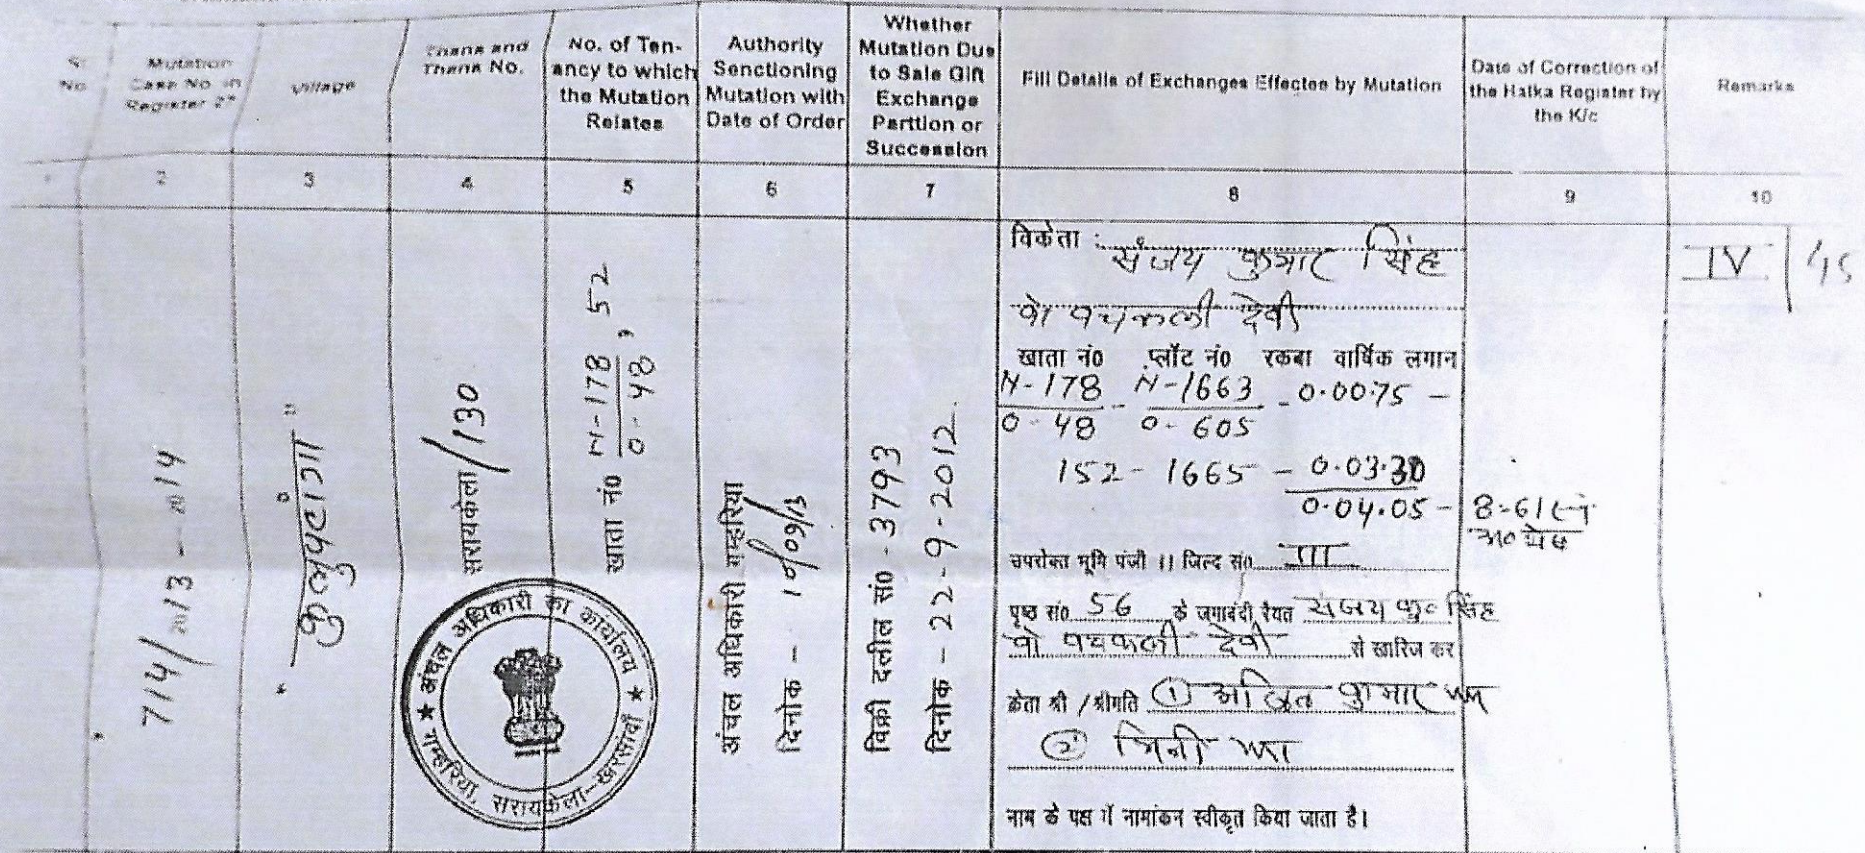 Sr. No.
Mutation Case No. in Register 2"
Village
Thana and Thana No.
No. of Ten-
ancy to which
the Mutation
Relates
Authority
Senctioning
Mutation with
Date of Order
Whether
Mutation Due
to Sale Gift
Exchange
Parttion or
Succession
Fill Details of Exchanges Effectee by Mutation
Date of Correction of
the Halka Register by
the K/c
Remarks
2
3
4
5
6
7
8
9
10
714/2013-2014
सरायकेला/130
खाता नं० N-178, 52
0-48
अंचल अधिकारी गम्हरिया
दिनोक -
विक्री दलील सं० - 3793
दिनोक - 22-9-2012
विकेता : संजय कुमार सिंह
वो पचकली देवी
खाता नं० प्लॉट नं० रकबा वार्षिक लगान
N-178 N-1663 - 0.00.75 -
0-48 0-605
152 - 1665 - 0.03.30
0.04.05 -
उपरोक्त भूमि पंजी ।। जिल्द सं० III
पृष्ठ सं० 56 के जमाबंदी रैयत संजय कु० सिंह
वो पचकली देवी से खारिज कर
केता श्री / श्रीमति ① अजित कुमार
②
नाम के पक्ष में नामांकन स्वीकृत किया जाता है।
IV / 45
★ अंचल अधिकारी का कार्यालय ★
गम्हरिया, सरायकेला-खरसावाँ